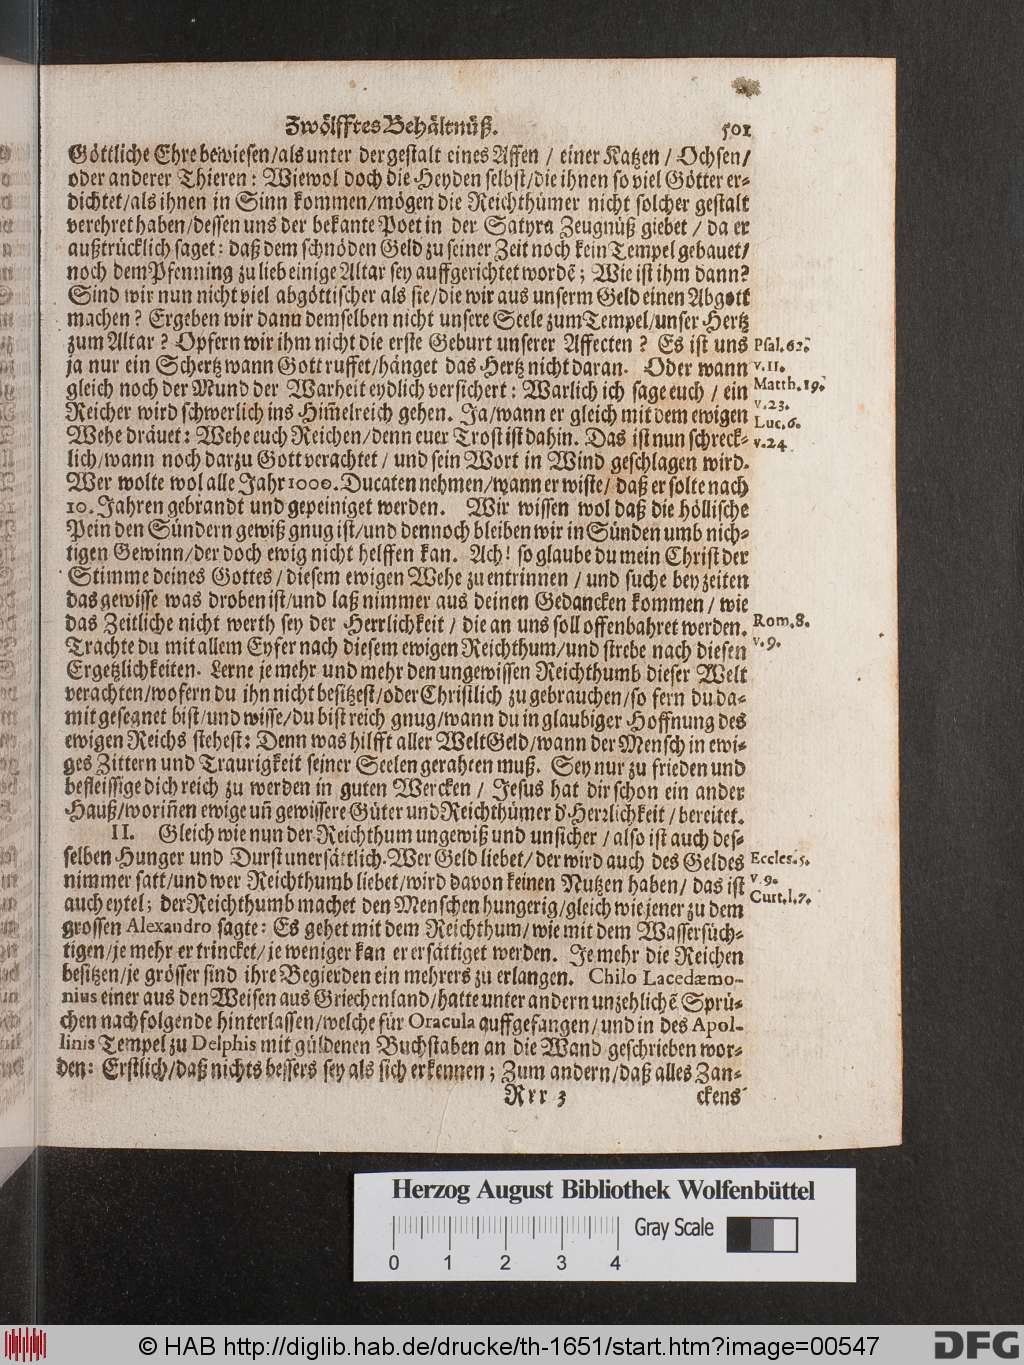 Zwölfftes Behältnüß. 501
Göttliche Ehre bewiesen/als unter der gestalt eines Affen / einer Katzen / Ochsen/
oder anderer Thieren: Wiewol doch die Heyden selbst/die ihnen so viel Götter er-
dichtet/als ihnen in Sinn kommen/mögen die Reichthümer nicht solcher gestalt
verehret haben/dessen uns der bekante Poet in der Satyra Zeugnüß giebet / da er
außtrücklich saget: daß dem schnöden Geld zu seiner Zeit noch kein Tempel gebauet/
noch dem Pfenning zu lieb einige Altar sey auffgerichtet wordē; Wie ist ihm dann?
Sind wir nun nicht viel abgöttischer als sie/die wir aus unserm Geld einen Abgott
machen? Ergeben wir dann demselben nicht unsere Seele zum Tempel/unser Hertz
zum Altar? Opfern wir ihm nicht die erste Geburt unserer Affecten? Es ist uns
ja nur ein Schertz wann Gott ruffet/hänget das Hertz nicht daran. Oder wann
gleich noch der Mund der Warheit eydlich versichert: Warlich ich sage euch / ein
Reicher wird schwerlich ins Him̄elreich gehen. Ja/wann er gleich mit dem ewigen
Wehe dräuet: Wehe euch Reichen/denn euer Trost ist dahin. Das ist nun schreck-
lich/wann noch darzu Gott verachtet / und sein Wort in Wind geschlagen wird.
Wer wolte wol alle Jahr 1000. Ducaten nehmen/wann er wiste/ daß er solte nach
10. Jahren gebrandt und gepeiniget werden. Wir wissen wol daß die höllische
Pein den Sündern gewiß gnug ist/und dennoch bleiben wir in Sünden umb nich-
tigen Gewinn/der doch ewig nicht helffen kan. Ach! so glaube du mein Christ der
Stimme deines Gottes / diesem ewigen Wehe zu entrinnen / und suche bey zeiten
das gewisse was droben ist/und laß nimmer aus deinen Gedancken kommen / wie
das Zeitliche nicht werth sey der Herrlichkeit / die an uns soll offenbahret werden.
Trachte du mit allem Eyfer nach diesem ewigen Reichthum/und strebe nach diesen
Ergetzlichkeiten. Lerne je mehr und mehr den ungewissen Reichthumb dieser Welt
verachten/wofern du ihn nicht besitzest/oder Christlich zu gebrauchen/so fern du da-
mit gesegnet bist/und wisse/du bist reich gnug/wann du in glaubiger Hoffnung des
ewigen Reichs stehest: Denn was hilfft aller Welt Geld/wann der Mensch in ewi-
ges Zittern und Traurigkeit seiner Seelen gerahten muß. Sey nur zu frieden und
befleissige dich reich zu werden in guten Wercken / Jesus hat dir schon ein ander
Hauß/worin̄en ewige un̄ gewissere Güter und Reichthümer d' Herzlichkeit / bereitet.
II. Gleich wie nun der Reichthum ungewiß und unsicher / also ist auch des-
selben Hunger und Durst unersättlich. Wer Geld liebet/ der wird auch des Geldes
nimmer satt/und wer Reichthumb liebet/wird davon keinen Nutzen haben/ das ist
auch eytel; der Reichthumb machet den Menschen hungerig/gleich wie jener zu dem
grossen Alexandro sagte: Es gehet mit dem Reichthum/wie mit dem Wassersüch-
tigen/je mehr er trincket/je weniger kan er ersättiget werden. Je mehr die Reichen
besitzen/je grösser sind ihre Begierden ein mehrers zu erlangen. Chilo Lacedæmo-
nius einer aus den Weisen aus Griechenland/hatte unter andern unzehlichē Sprü-
chen nachfolgende hinterlassen/welche für Oracula auffgefangen/und in des Apol-
linis Tempel zu Delphis mit güldenen Buchstaben an die Wand geschrieben wor-
den: Erstlich/daß nichts bessers sey als sich erkennen; Zum andern/daß alles Zan-
Rrr 3 ckens
Psal. 62.
v. 11.
Matth. 19.
v. 23.
Luc. 6.
v. 24
Rom. 8.
v. 9.
Eccles. 5.
v. 9.
Curt. l. 7.
Herzog August Bibliothek Wolfenbüttel
Gray Scale
0 1 2 3 4
© HAB http://diglib.hab.de/drucke/th-1651/start.htm?image=00547
DFG